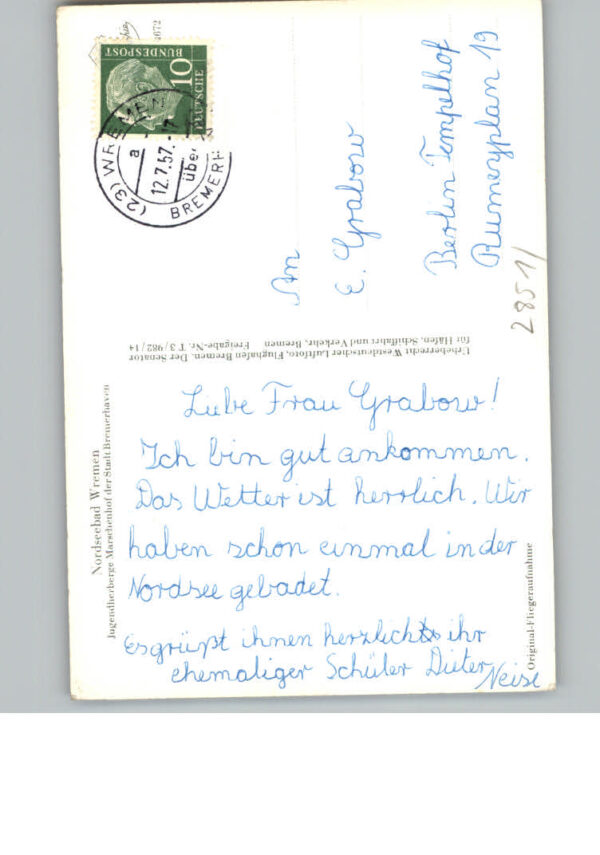 4672
10
DEUTSCHE
BUNDESPOST
(23) WREMEN
a
12.7.57.-17
über
BREMERH
An
E. Grabow
Berlin Tempelhof
Rumeyplan 19
2851/
Urheberrecht Westdeutscher Luftfoto, Flughafen Bremen. Der Senator
für Häfen, Schiffahrt und Verkehr, Bremen Freigabe-Nr. T 3/982/14
Nordseebad Wremen
Jugendherberge Marschenhof der Stadt Bremerhaven
Liebe Frau Grabow!
Ich bin gut ankommen.
Das Wetter ist herrlich. Wir
haben schon einmal in der
Nordsee gebadet.
Es grüßt ihnen herzlichts ihr
ehemaliger Schüler Dieter
Neise
Original-Fliegeraufnahme